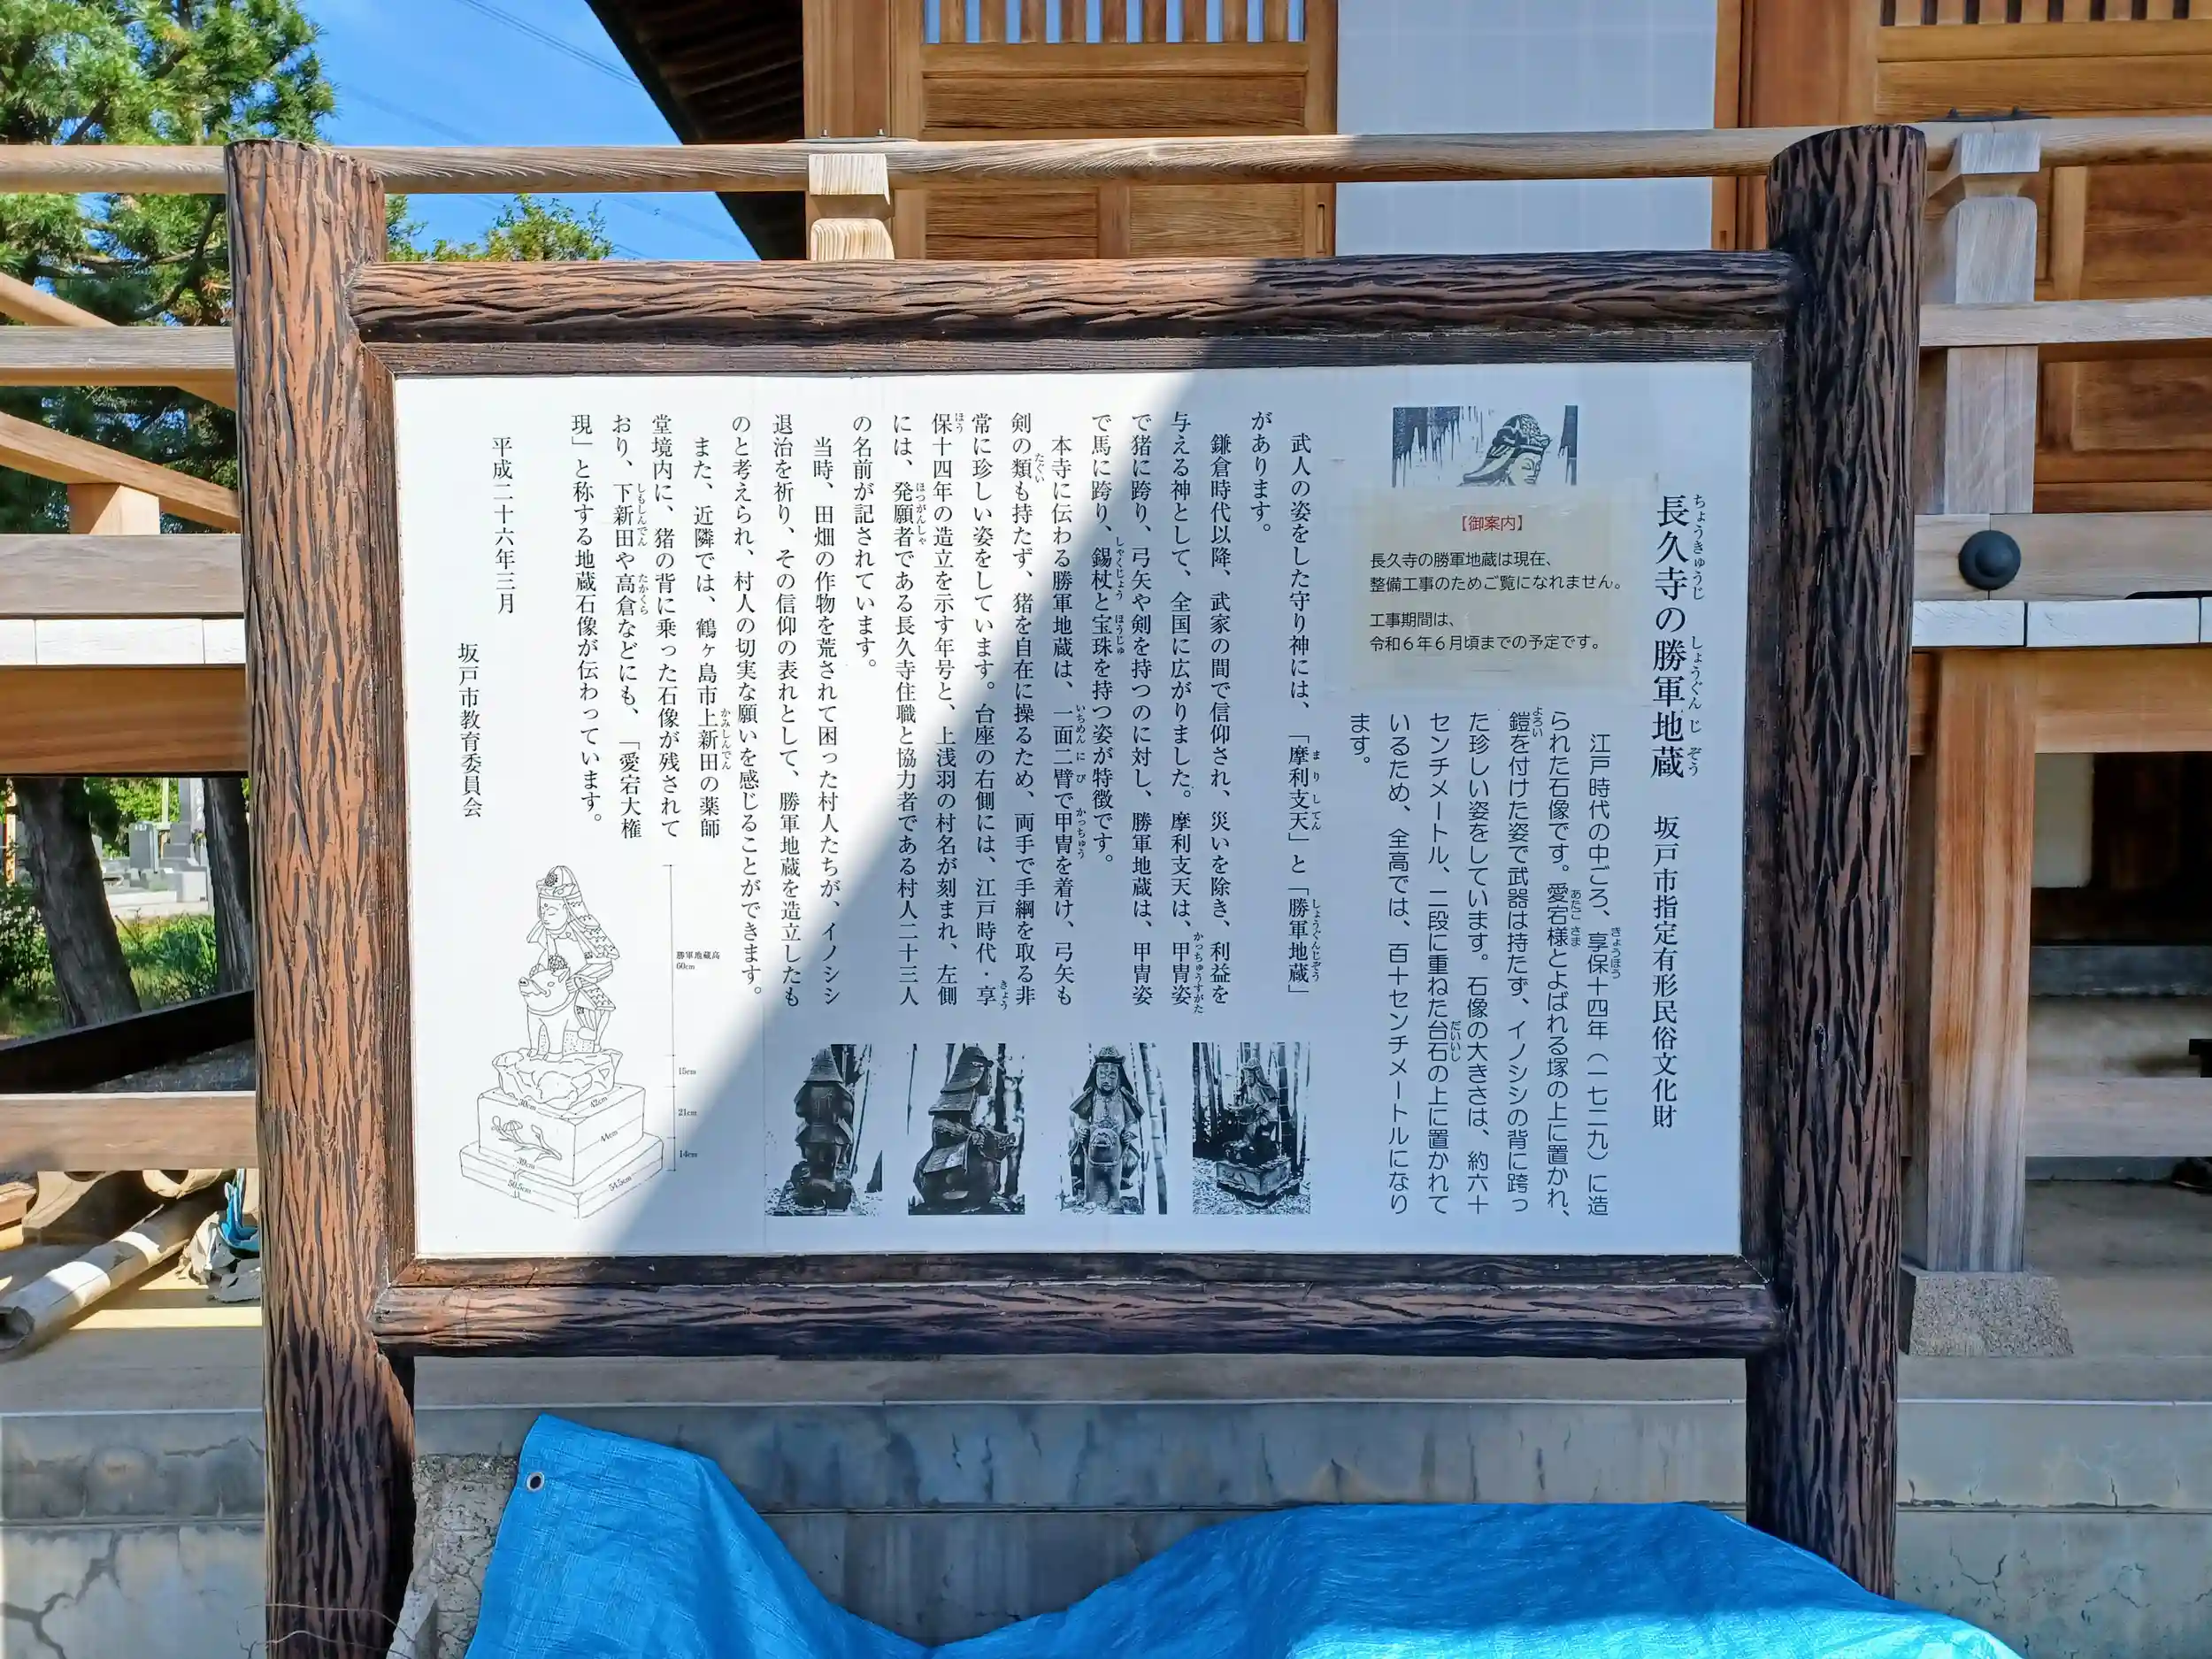 長久寺の勝軍地蔵　坂戸市指定有形民俗文化財
ちょうきゅうじ
しょうぐんじぞう
【御案内】
長久寺の勝軍地蔵は現在、
整備工事のためご覧になれません。
工事期間は、
令和６年６月頃までの予定です。
江戸時代の中ごろ、享保十四年（一七二九）に造
きょうほう
られた石像です。愛宕様とよばれる塚の上に置かれ、
あたごさま
鎧を付けた姿で武器は持たず、イノシシの背に跨っ
よろい
た珍しい姿をしています。石像の大きさは、約六十
センチメートル、二段に重ねた台石の上に置かれて
だいいし
いるため、全高では、百十センチメートルになり
ます。
武人の姿をした守り神には、「摩利支天」と「勝軍地蔵」
まりしてん
しょうぐんじぞう
があります。
鎌倉時代以降、武家の間で信仰され、災いを除き、利益を
与える神として、全国に広がりました。摩利支天は、甲冑姿
かっちゅうすがた
で猪に跨り、弓矢や剣を持つのに対し、勝軍地蔵は、甲冑姿
で馬に跨り、錫杖と宝珠を持つ姿が特徴です。
しゃくじょう
ほうじゅ
本寺に伝わる勝軍地蔵は、一面二臂で甲冑を着け、弓矢も
いちめんにび
かっちゅう
剣の類も持たず、猪を自在に操るため、両手で手綱を取る非
たぐい
常に珍しい姿をしています。台座の右側には、江戸時代・享
きょう
保十四年の造立を示す年号と、上浅羽の村名が刻まれ、左側
ほう
には、発願者である長久寺住職と協力者である村人二十三人
ほつがんしゃ
の名前が記されています。
当時、田畑の作物を荒されて困った村人たちが、イノシシ
退治を祈り、その信仰の表れとして、勝軍地蔵を造立したも
のと考えられ、村人の切実な願いを感じることができます。
また、近隣では、鶴ヶ島市上新田の薬師
かみしんでん
堂境内に、猪の背に乗った石像が残されて
おり、下新田や高倉などにも、「愛宕大権
しもしんでん
たかくら
現」と称する地蔵石像が伝わっています。
平成二十六年三月
坂戸市教育委員会
勝軍地蔵高
60cm
15cm
21cm
14cm
30cm
42cm
44cm
39cm
50.5cm
54.5cm